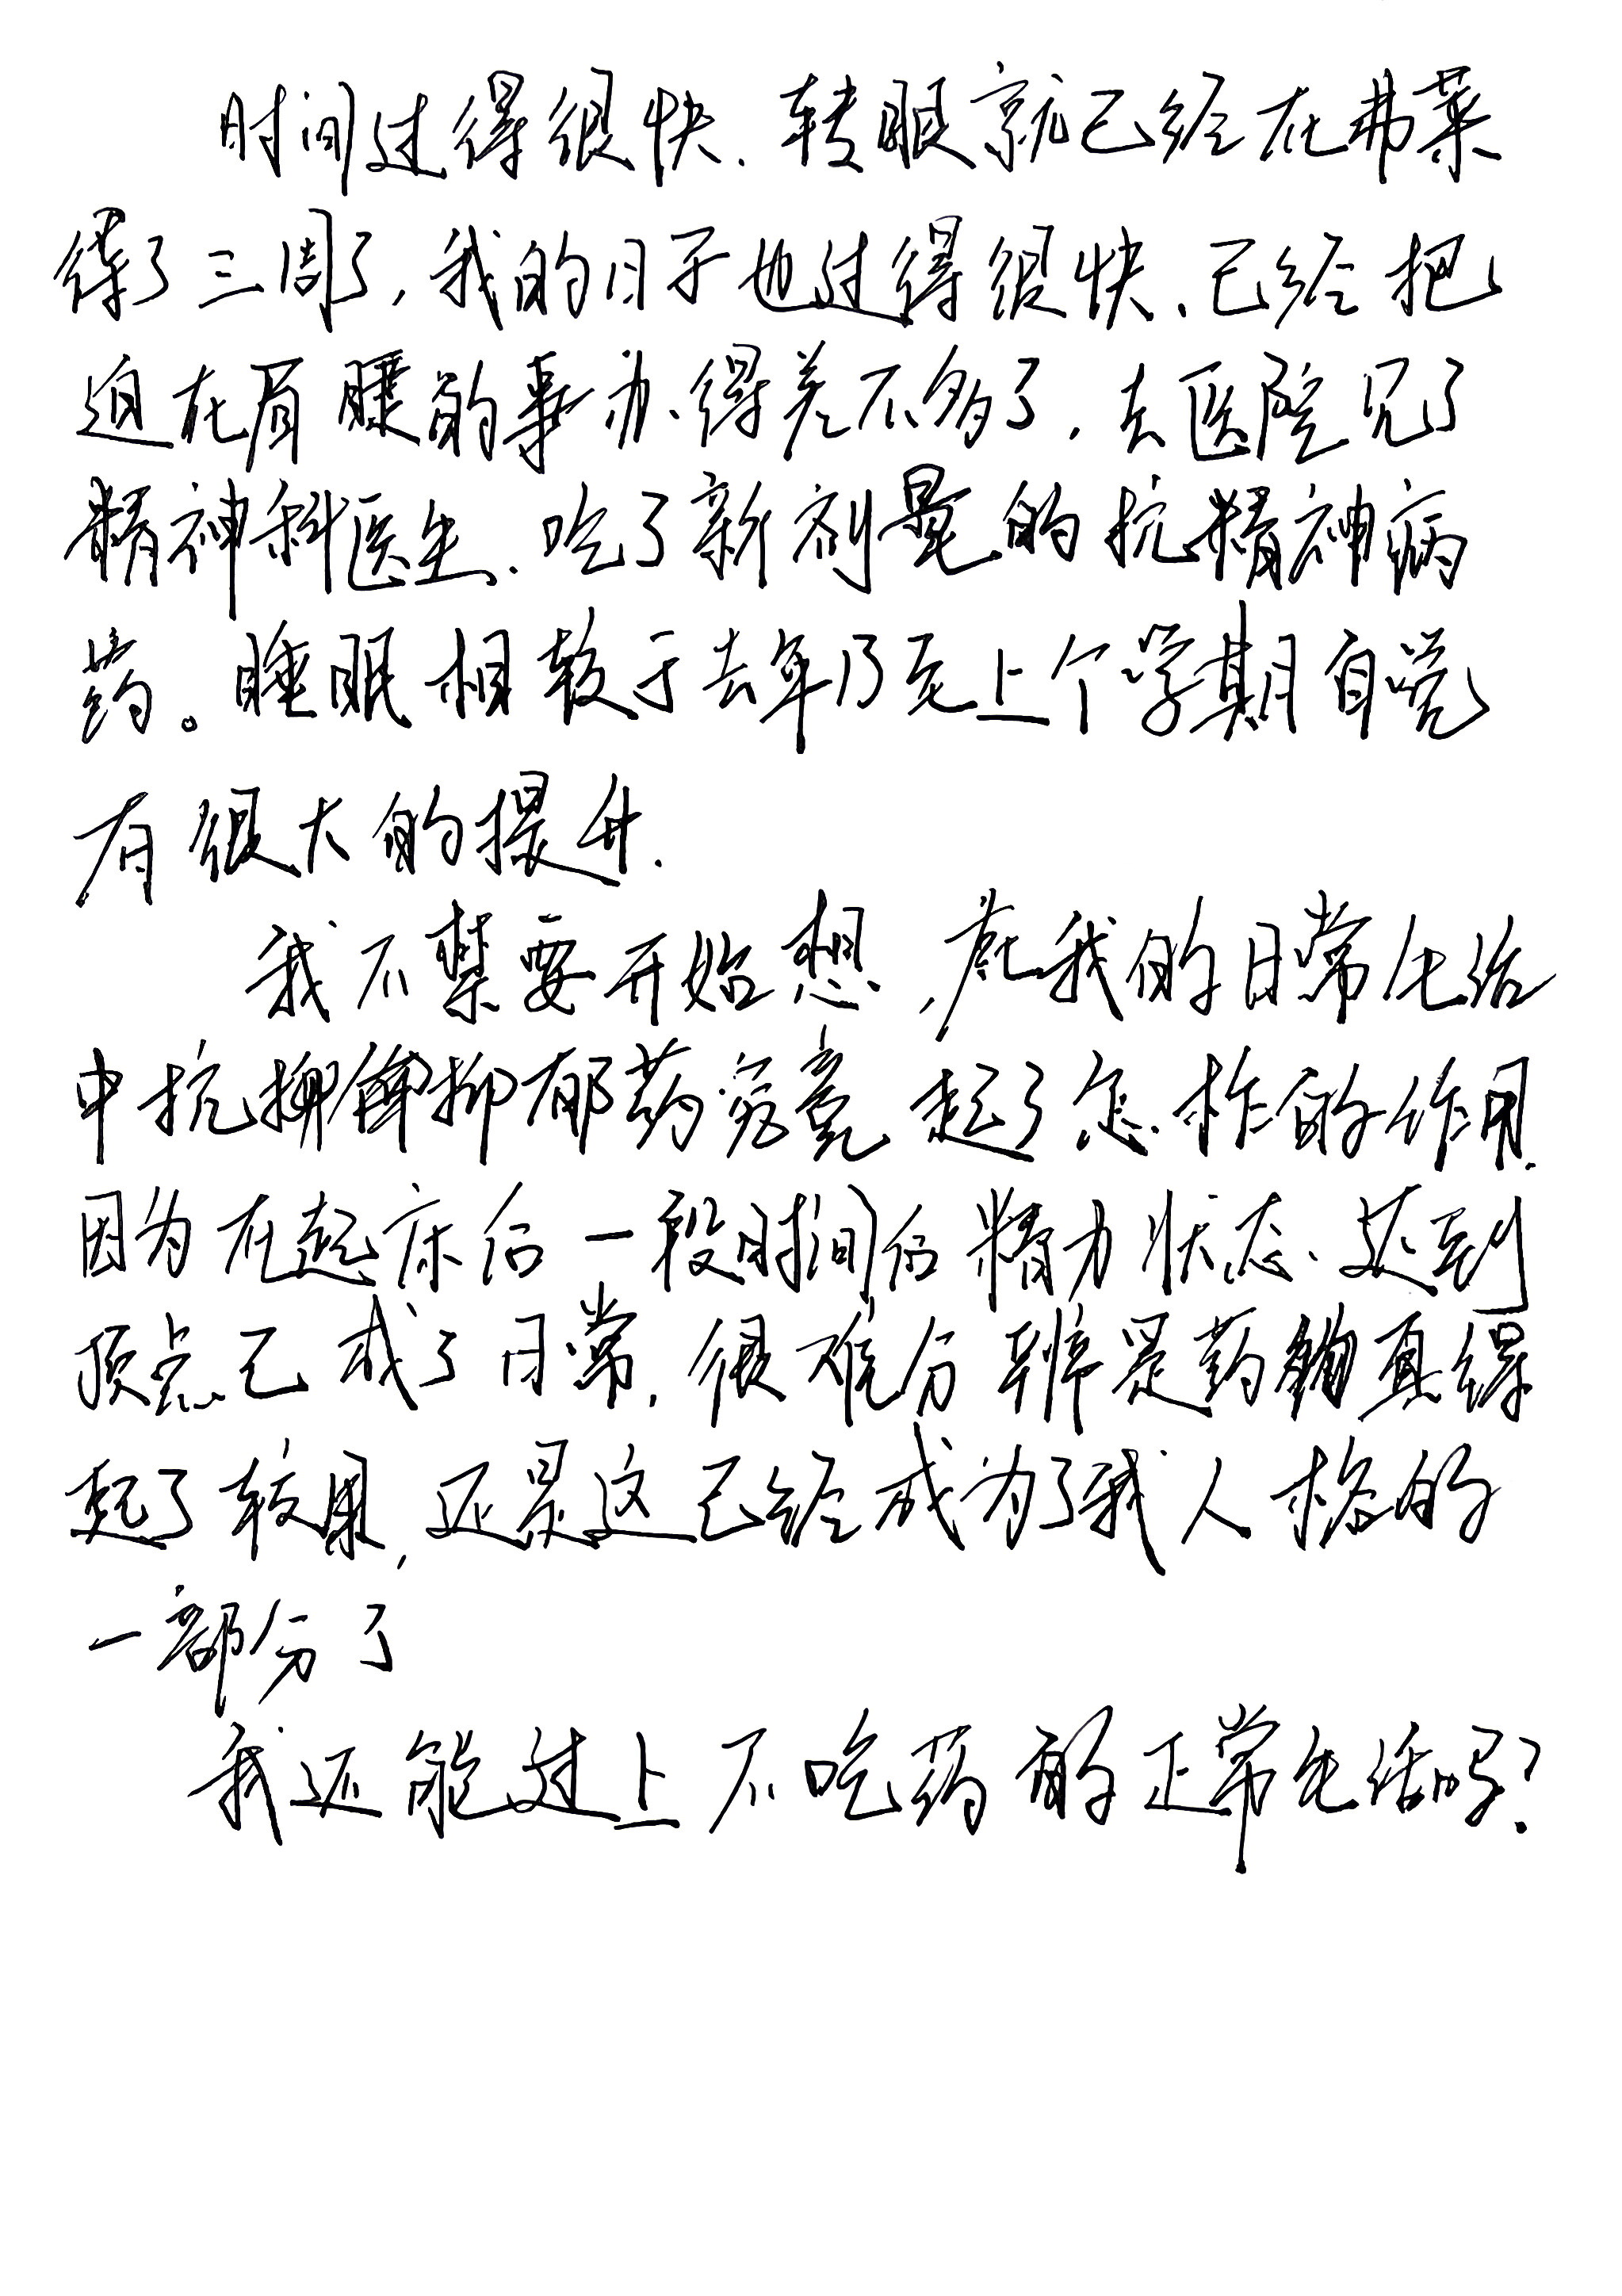 时间过得很快、转眼就已经在弗莱
得了三周了,我的日子也过得很快、已经把
迫在眉睫的事办得差不多了,去医院见了
精神科医生、吃了新剂量的抗精神病
药。睡眠相较于去年乃至上个学期自觉
有很大的提升.
我不禁要开始想,在我的日常生活
中抗抑郁药究竟起了怎样的作用.
因为在起床后一段时间后精力状态、达到
顶点已成了日常,很难分辨是药物真得
起了效果,还是这已经成为了我人格的
一部分了
我还能过上不吃药的正常生活吗?